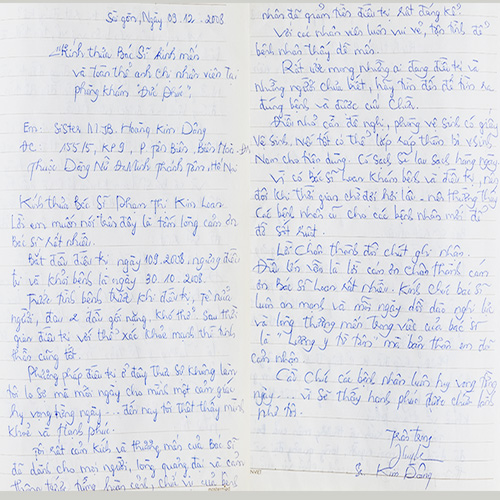 Sài gòn, Ngày 09.12.2008
Kính thưa Bác Sĩ kính mến
và toàn thể anh chị nhân viên tại
phòng khám "Đức Phúc".
Em: SISTER M.
Hoàng Kim Dâng
ĐC: 155/5, KP9, P Tân Biên, Biên Hoà
Thuộc Dòng Nữ Đaminh Thánh Tâm, Hố Nai
Kính thưa Bác Sĩ Phạm Thị Kim Loan
Lời em muốn nói trên đây là tấm lòng cảm ơn
Bác Sĩ rất nhiều.
Bắt đầu điều trị ngày 2008, ngừng điều
trị và khỏi bệnh là ngày 30.10.2008.
Trước tình bệnh trước khi điều trị, tê nửa
người, đau 2 đầu gối nặng. Khó thở. Sau thời
gian điều trị với thể xác khoẻ mạnh thì tinh
thần cũng tốt.
Phương pháp điều trị ở đây thưa Sĩ không làm
tôi lo sợ mà mỗi ngày cho mình một cảm giác
hy vọng từng ngày... đến nay tôi thật thấy mình
khoẻ và hạnh phúc.
Tôi rất cảm kích và thương mến của Bác Sĩ
đã dành cho mọi người, lòng quảng đại và cảm
thông trước từng hoàn cảnh, chia vui của bệnh
nhân đã giảm tiền điều trị rất đáng kể.
Với các nhân viên luôn vui vẻ, tận tình để
bệnh nhân thấy dễ mến.
Rất ước mong những ai đang điều trị và
những người chưa biết, hãy tìm đến để tìm ra
đúng bệnh và được cứu Chữa.
Điều như cần đề nghị, phòng vệ sinh có giấy
vệ sinh. Nếu tốt có thể lắp ráp thêm bì vệ sinh
Nam cho tiện dùng. Cô Sạch Sẽ lau Sạch hàng ngày.
Vì có Bác Sĩ Loan khám bệnh và điều trị, nên
đôi khi thời gian chờ đợi hơi lâu - nếu thường thấy
Các bệnh nhân cũ cho các bệnh nhân mới để
đỡ sốt ruột.
Lời Chân thành đôi chút ghi nhận.
Điều lớn vẫn là lời cảm ơn chân thành cám
ơn Bác Sĩ Loan rất nhiều. Kính chúc bác sĩ
luôn an mạnh và mỗi ngày dồi dào nghị lực
và lòng thương mến trong việc của bác sĩ
là "lương y từ tâm" mà bản thân em đã
cảm nhận.
Cầu Chúc Các bệnh nhân luôn hy vọng từng
ngày... vì sẽ thấy hạnh phúc được chữa bệnh
như tôi.
Trân trọng
Sr. Kim Dâng